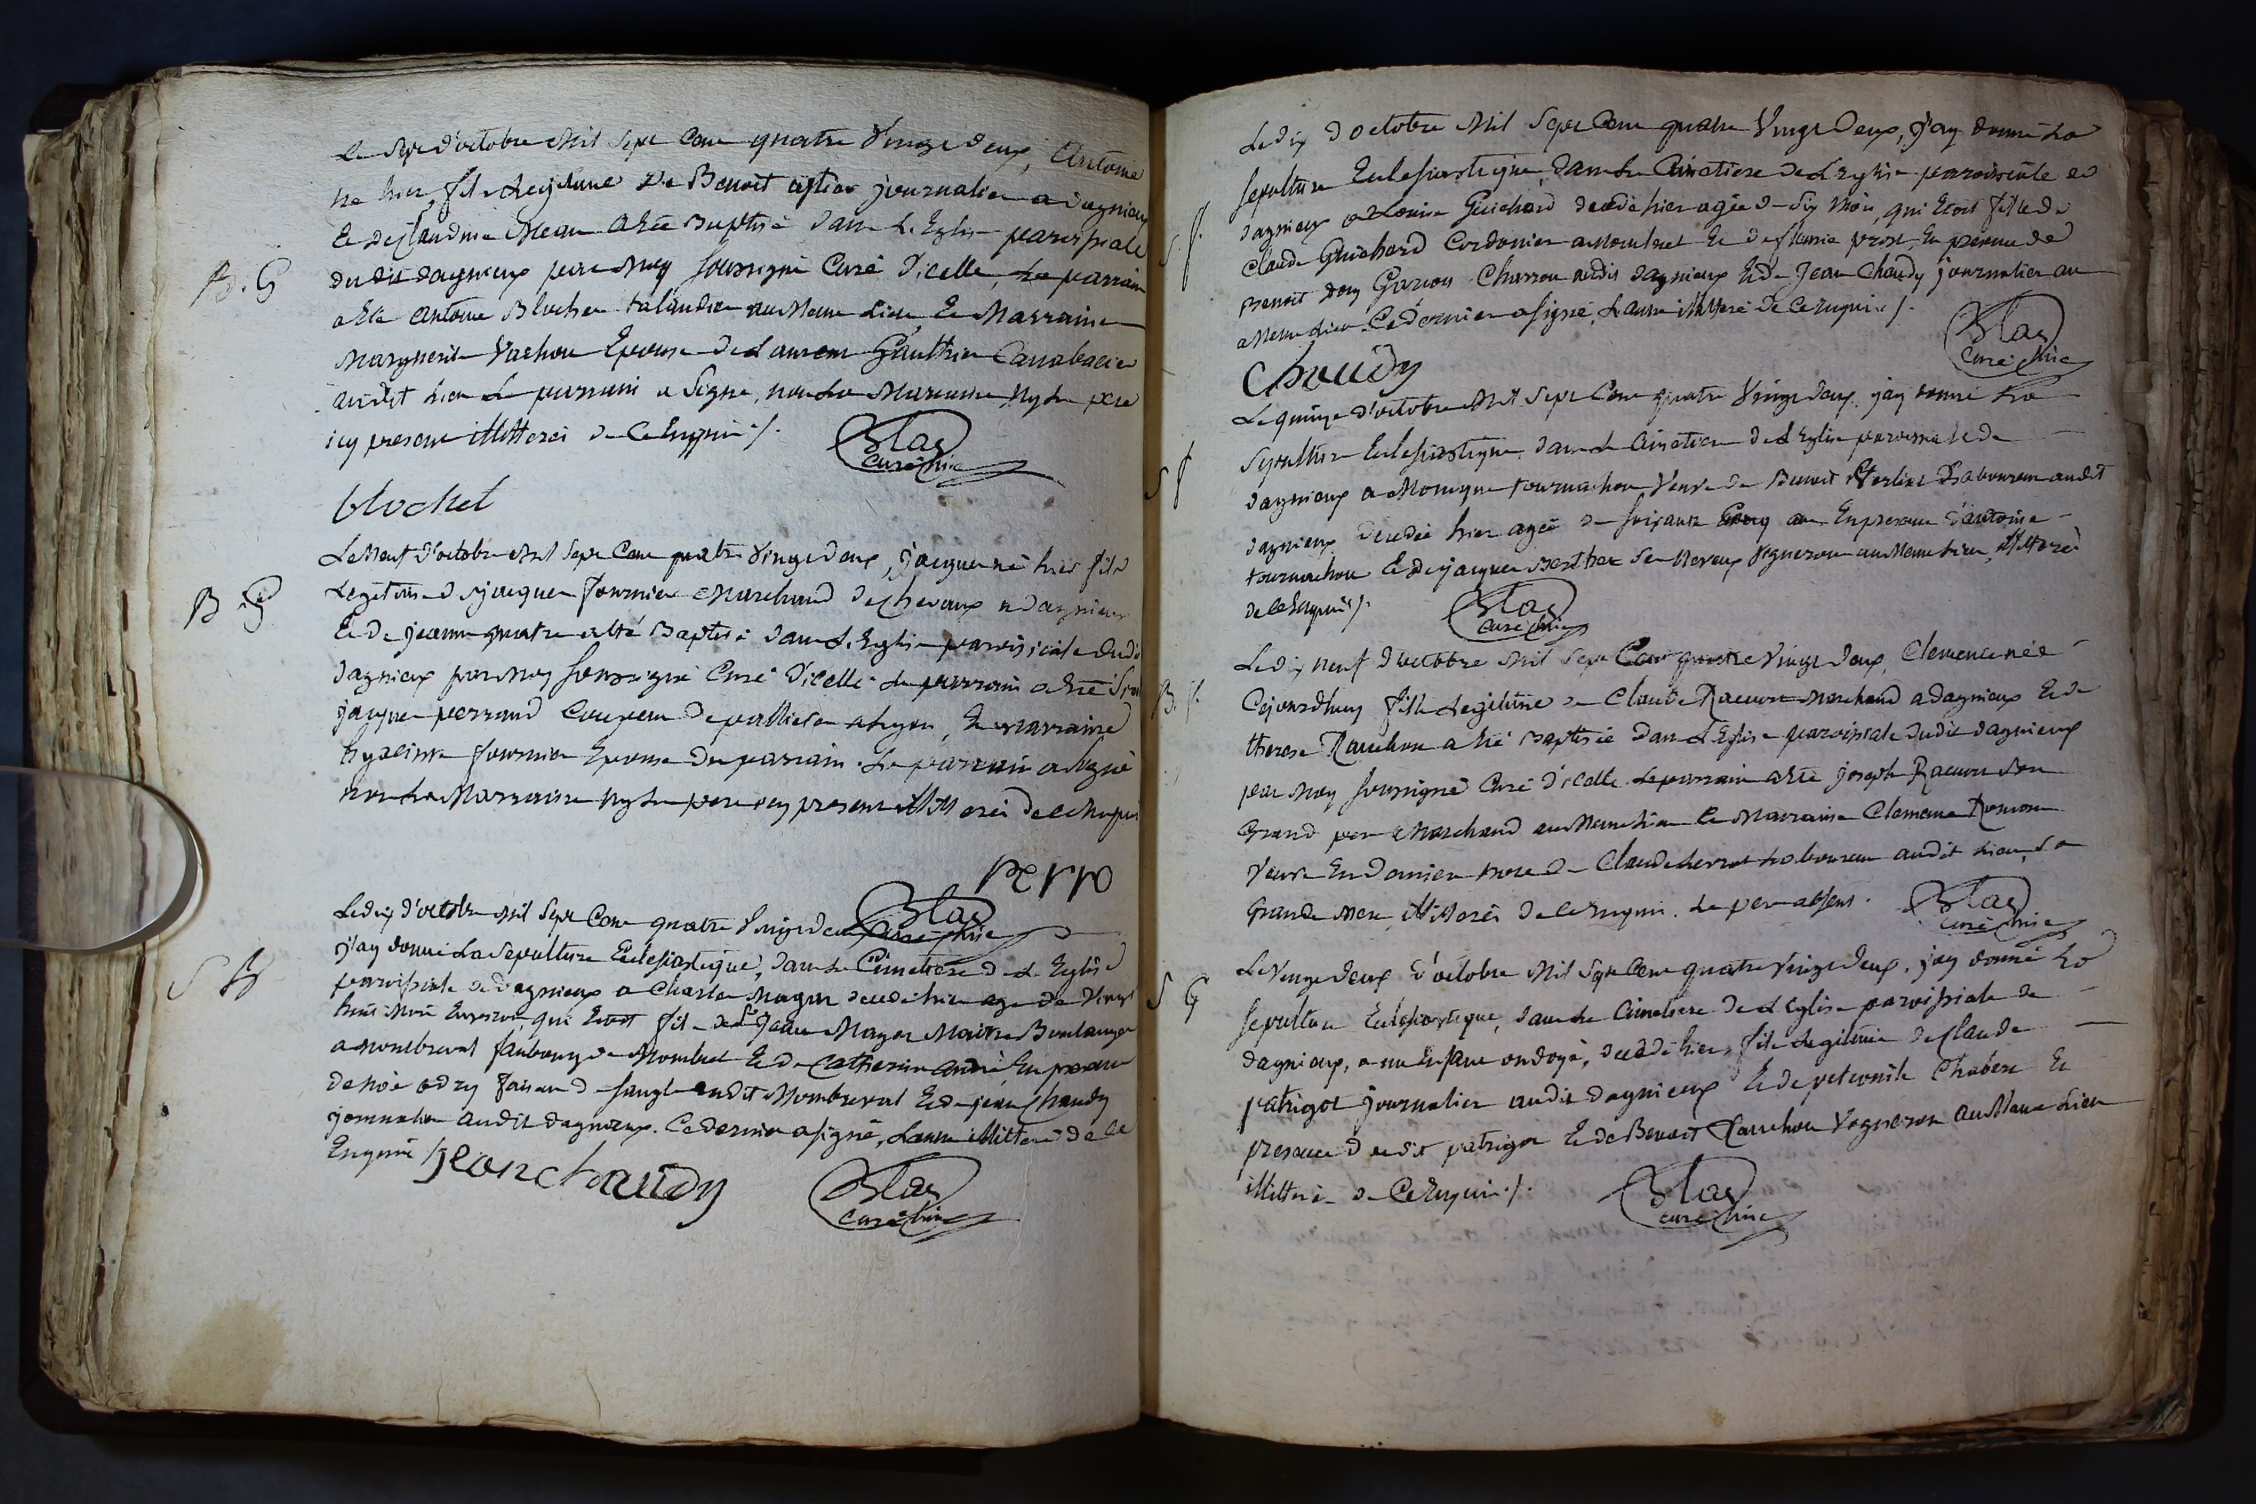 Le Sept d'octobre Mil Sept Cent quatre Vingt deux, Antoine
né hier, fils Legitime de Benoit journalier a dagnieux
Et de Claudine a Eté Baptisé dans L'Eglise paroissiale
du dit dagnieux par Moy soussigné Curé d'icelle, Le parrain
B. G
a Eté antoine Blochet taland̄ier au Meme Lieu Et Marraine
Marguerite Vachon Epouse de Laurent Gauthier Cannabacier
audit Lieu Le parrain a Signé, non La Marraine Ny Le pere
icy present illitterés de Ce Enquis ./.
Blas
curé
blochet
Le Neuf d'octobre Mil Sept Cent quatre Vingt deux, jacques né hier fils
Legitime de jacques fournier Marchand de Chevaux a dagnieux
B G
Et de jeanne quatre a Eté Baptisé dans L'Eglise paroissiale dudit
dagnieux par Moy soussigné Curé d'icelle Le parrain a Eté
jacques perrand Coupeur de a Lyon, La Marraine
hyacinte fournier Epouse du parrain. Le parrain a Signé
non La Marraine Ny Le pere icy present illitterés de ce Enquis
perro
Blas
curé
Le dix d'octobre Mil Sept Cent quatre Vingt deux
j'ay donné La Sepulture Eclesiastique, dans Le Cimetiere de L'Eglise
S
paroissiale de dagnieux a Charles Mayer decedé hier agé de Vingt
huit Mois Environ, qui Etoit fils de Sr Jean Mayer Maitre Boulanger
a Montbreval faubourg de Montluel Et de Catherine andré, En presence
de Noé odry faiseur de sangle audit Montbreval Et de jean Chaudy
journalier audit dagnieux. Ce dernier a signé, L'autre illitteré de Ce
Enquis ./.
jeanchaudy
Blas
curé
Le dix d'octobre Mil Sept Cent quatre Vingt Deux, j'ay donné La
Sepulture Eclesiastique, dans Le Cimetiere de L'Eglise paroissiale de
S. f.
dagnieux a Louise Guichard decedée hier agée de Six Mois, qui Etoit fille de
Claude Guichard Cordonier a Montluel Et de prost, En presence de
Benoit Garcon Charron audit dagnieux Et de Jean Chaudy journalier au
Meme Lieu. Ce dernier a signé, L'autre illitteré de Ce Enquis ./.
Chaudy
Blas
curé
Le quinze d'octobre Mil Sept Cent quatre Vingt deux. j'ay donné La
Sepulture Eclesiastique, dans Le Cimetiere de L'Eglise paroissiale de
S f
dagnieux a Monique tournachon Veuve de Benoit Laboureur audit
dagnieux decedée hier agée de soixante ans En presence d'antoine
tournachon Et de jacques Berthet Son Neveu Vigneron au Meme Lieu, illitterés
de Ce Enquis ./.
Blas
curé
Le dix neuf d'octobre Mil Sept Cent quatre Vingt deux, Clemence née
B. f.
Cejourdhuy fille Legitime de Claude Racurt Marchand a dagnieux Et de
therese Rauchon a Eté Baptisée dans L'Eglise paroissiale dudit dagnieux
par Moy soussigné Curé d'icelle. Le parrain a Eté joseph Racurt Son
Grand pere Marchand au Meme Lieu La Marraine Clemence
Veuve En Dernier de Claude Laboureur audit Lieu, Sa
Grande Mere, illitterés de Ce Enquis. Le pere absent.
Blas
curé
Le Vingt Deux d'octobre Mil Sept Cent quatre Vingt deux, j'ay donné La
S G
Sepulture Eclesiastique, dans Le Cimetiere de L'Eglise paroissiale de
dagnieux, a un Enfant ondoyé, decedé hier, fils Legitime de Claude
patrigot journalier audit dagnieux Et de petronile Chabert En
presence dudit patrigot Et de Benoit Rauchon Vigneron au Meme Lieu
illitterés de Ce Enquis ./.
Blas
curé